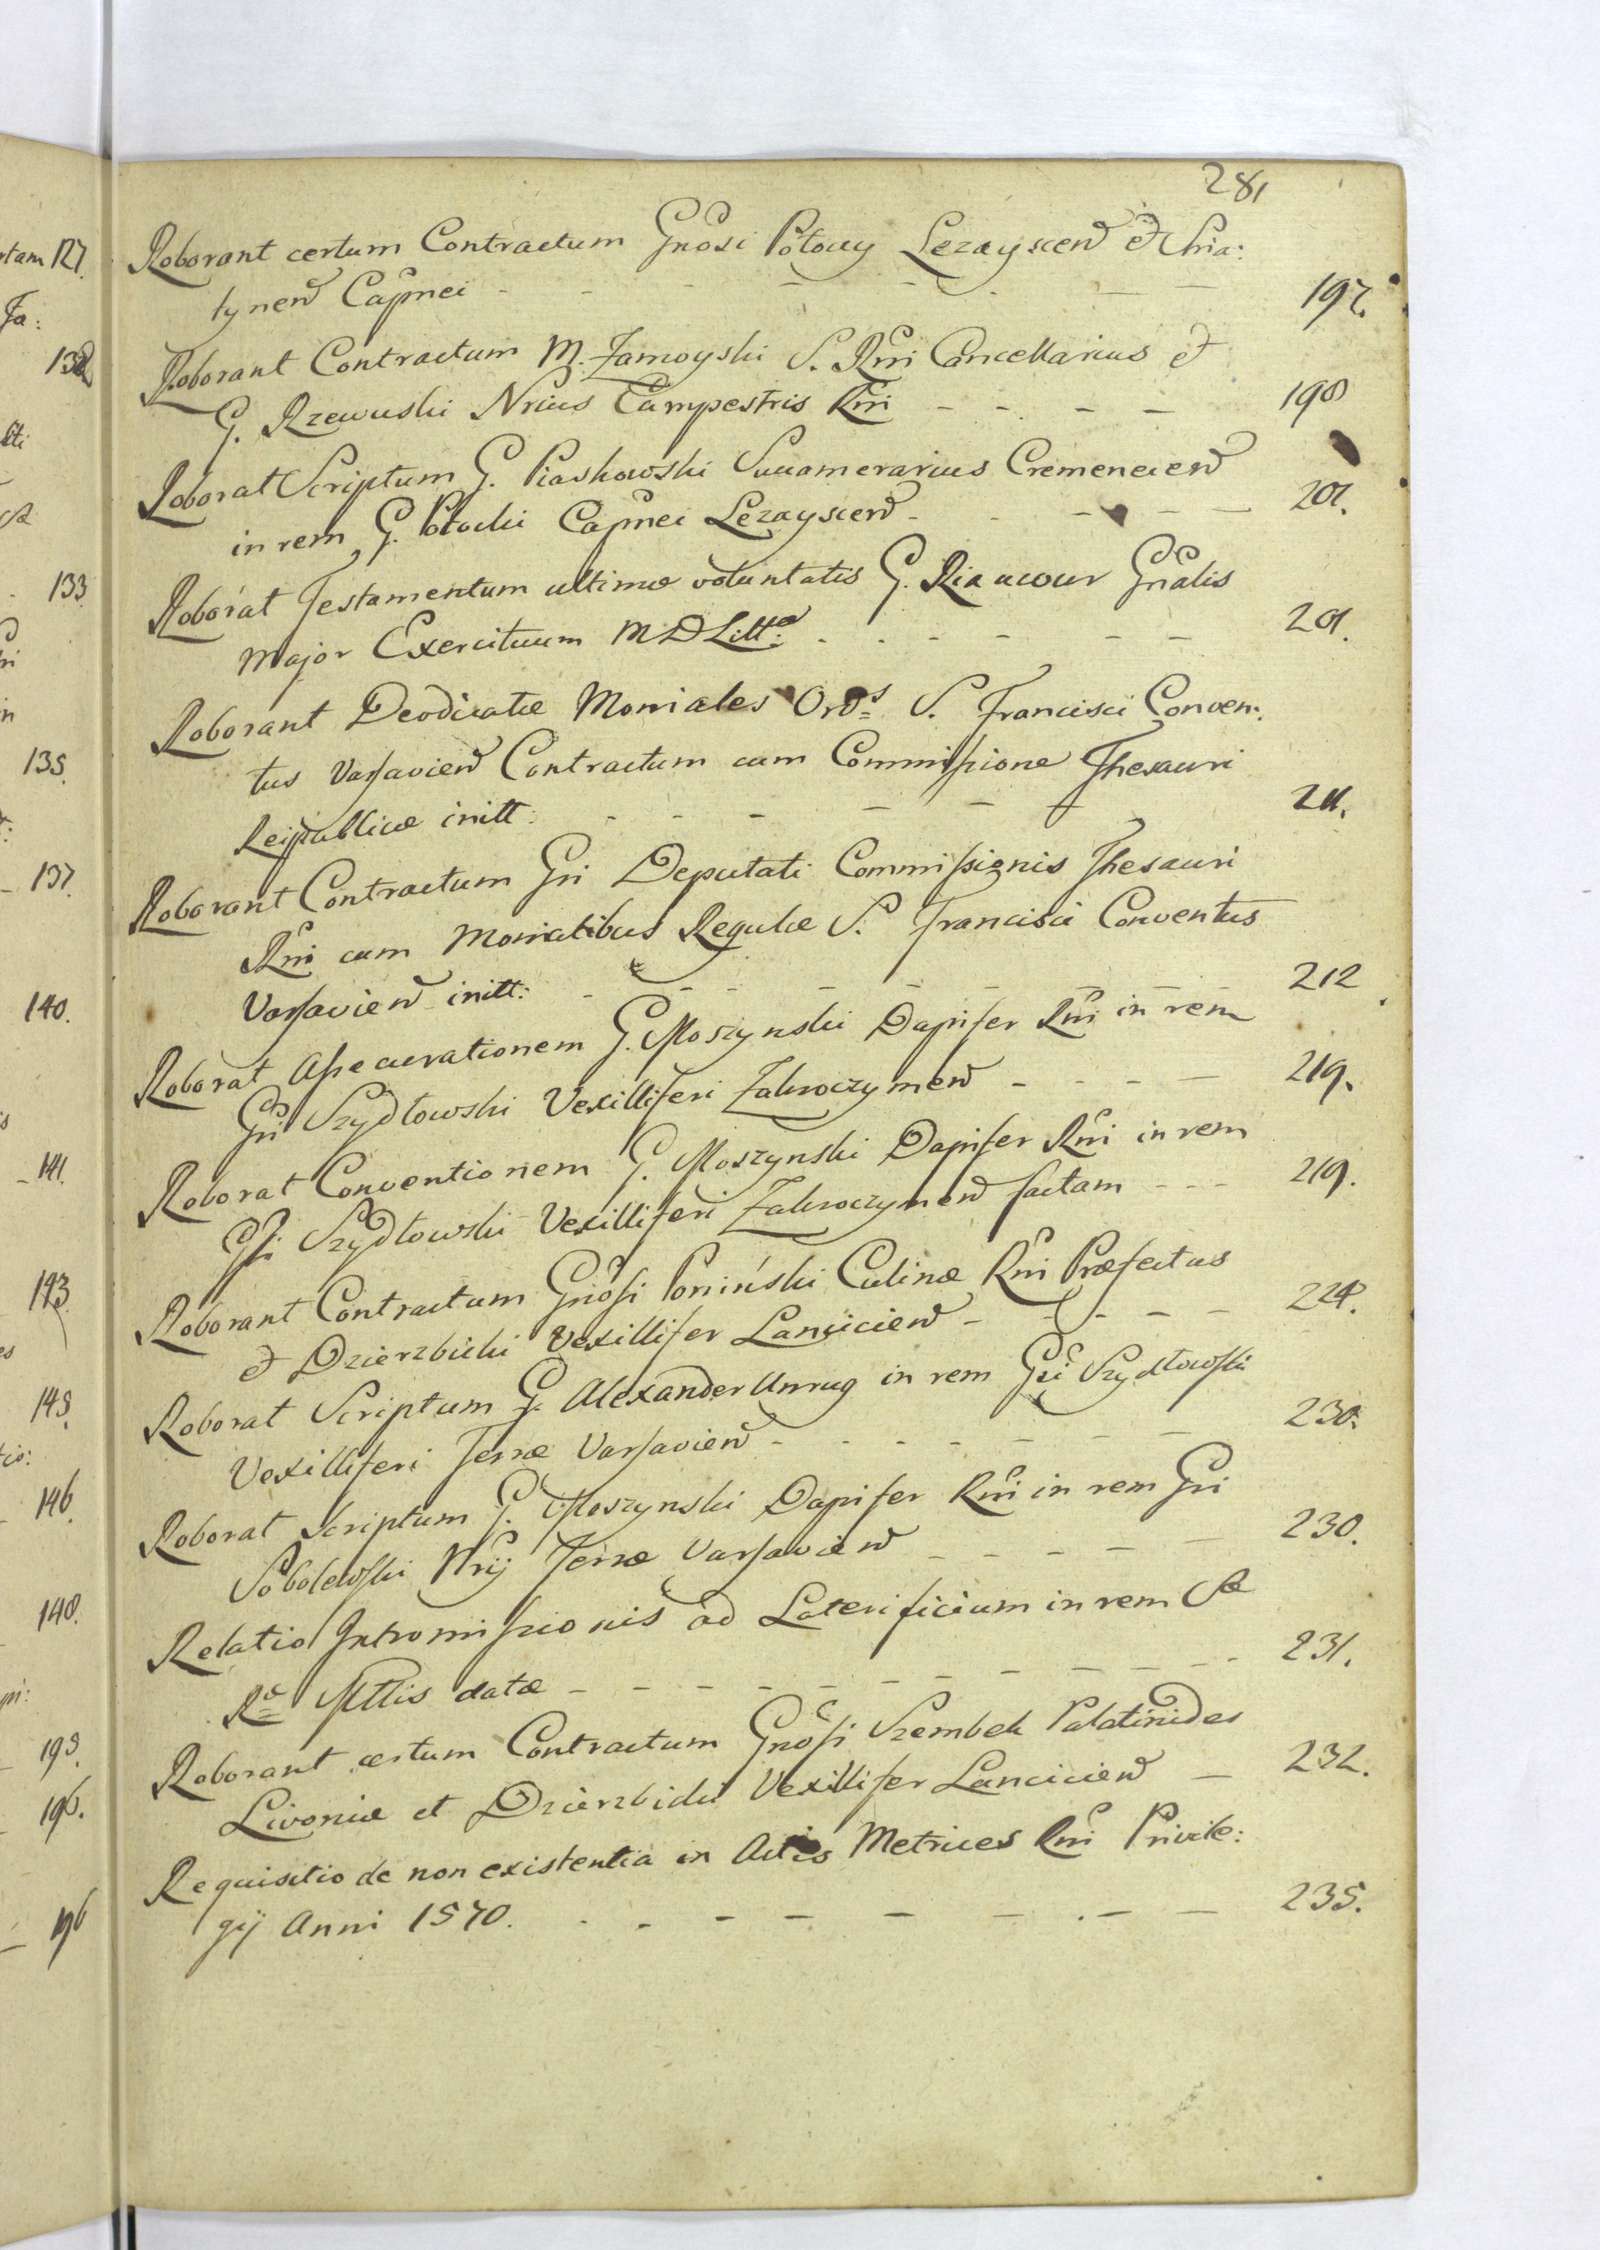 281
Roborant certum Contractum Gnosi Potoccy Lezayscen et Snia:
tynen Capnei - - - - - 197.
Roborant Contractum M. Zamoyski S. Rni Cancellarius et
G. Rzewuski Nrius Campestris Rni - - - - 198
Roborat Scriptum G. Piaskowski Succamerarius Cremenecen
in rem G. Potocki Capnei Lezayscen - - - - 201.
Roborat Testamentum ultimæ voluntatis G. Riaucour Gnalis
Major Exercituum M D Litt: - - - - - 201.
Roborant Deodicatæ Moniales Ords S. Francisci Conven:
tus Varsavien Contractum cum Commissione Thesauri
Reipublicæ initt: - - - - - 211.
Roborant Contractum Gri Deputati Commissionis Thesauri
Rni cum Monialibus Regulæ S. Francisci Conventus
Varsavien initt: - - - - - 212
Roborat Assecurationem G. Moszynski Dapifer Rni in rem
Gri Szydłowski Vexilliferi Zakroczymen - - - - 219.
Roborat Conventionem G. Moszynski Dapifer Rni in rem
Gri Szydłowski Vexilliferi Zakroczymen factam - - - 219.
Roborant Contractum Gnosi Poniński Culinæ Rni Præfectus
et Dzierzbicki Vexillifer Lancicien - - - - 228.
Roborat Scriptum G. Alexander Unrug in rem Gri Szydłowski
Vexilliferi Terræ Varsavien - - - - - 230.
Roborat Scriptum G. Moszynski Dapifer Rni in rem Gri
Sobolewski Nrij Terræ Varsavien - - - - - 230.
Relatio Intromissionis ad Laterificium in rem Sæ
Ræ Mttis datæ - - - - - - 231.
Roborant certum Contractum Gnosi Szembek Palatinides
Livoniæ et Dzierzbicki Vexillifer Lancicien - 232.
Requisitio de non existentia in Actis Metrices Rni Privile:
gij Anni 1570. - - - - - - 235.